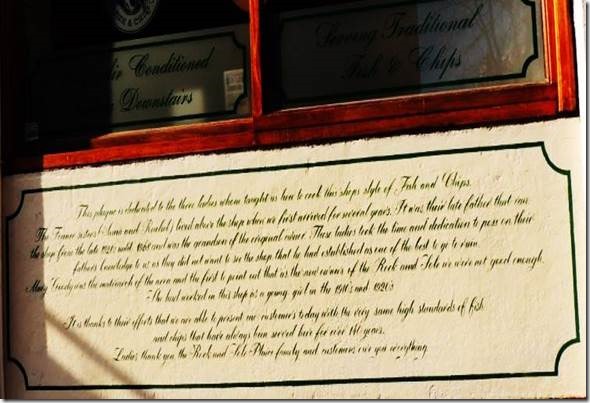 & C
Air Conditioned
Downstairs
Serving Traditional
Fish & Chips
This plaque is dedicated to the three ladies whom taught us how to cook this shops style of Fish and Chips.
The France sisters (Anna and Rachel) lived above the shop when we first arrived for several years. It was their late father that ran
the shop from the late 1920's until 1968 and was the grandson of the original owner. These ladies took the time and dedication to pass on their
fathers knowledge to us as they did not want to see the shop that he had established as one of the best to go to ruin.
Mary Goody was the matriarch of the area and the first to point out that us the new owners of the Rock and Sole we were not good enough.
She had worked in this shop as a young girl in the 1910's and 1920's
It is thanks to their efforts that we are able to present our customers today with the very same high standards of fish
and chips that have always been served here for over 140 years.
Ladies thank you, the Rock and Sole Plaice family and customers owe you everything.